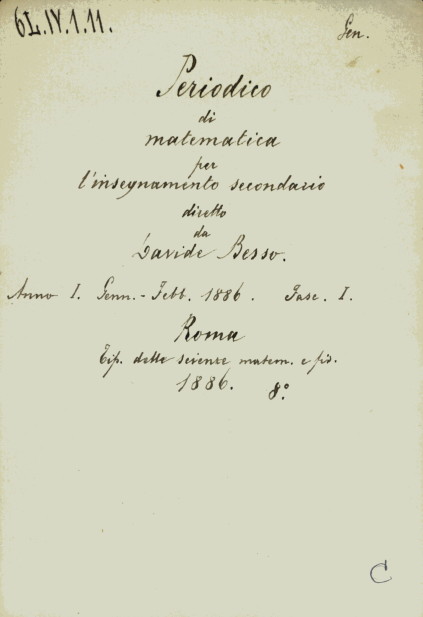 6L.IV.1.11.
Gen.
Periodico
di
matematica
per
l'insegnamento secondario
diretto
da
Davide Besso.
Anno I. Genn.-Febb. 1886. Fasc. I.
Roma
Tip. delle scienze matem. e fis.
1886. 8°.
C